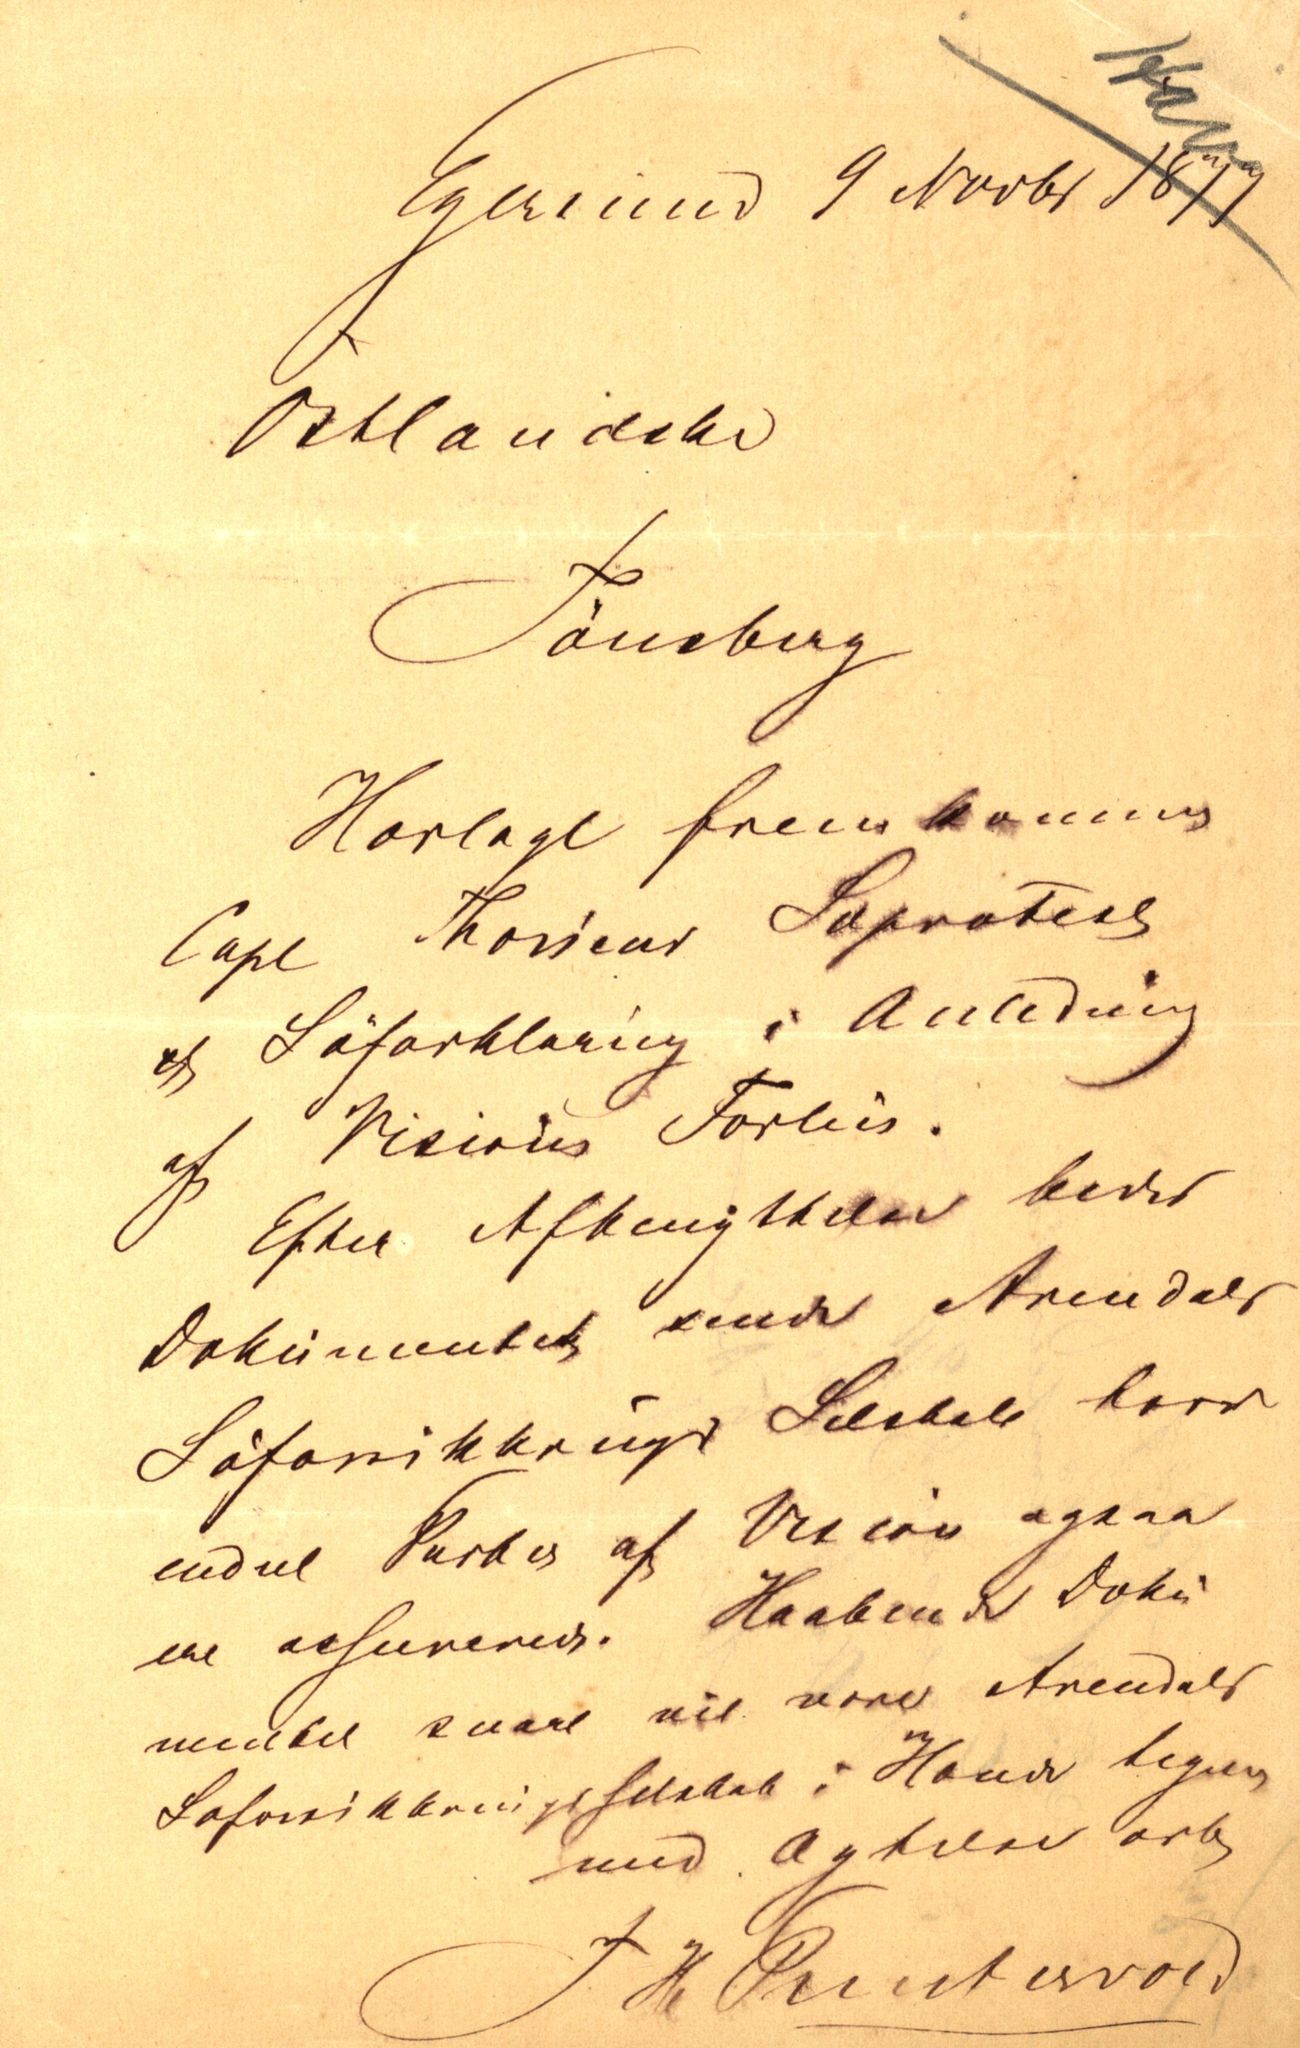 Egersund 9 Novbr 1877
Östlandske
Tönsberg
Hoslagt fremkommer
Capt Thorsens Søprotest
& Söforklaring i Anledning
af Visions Forliis.
Efter Afbenyttelse bedes
Dokumentet sendt Arendals
Söforsikkrings Selskab hvor
endeel Parter af Vision ogsaa
er assureret. Haabende Doku
mentet snart vil være Arendals
Söforsikkringsselskab i Hænde tegner
med Agtelse erb
J H Puntervold